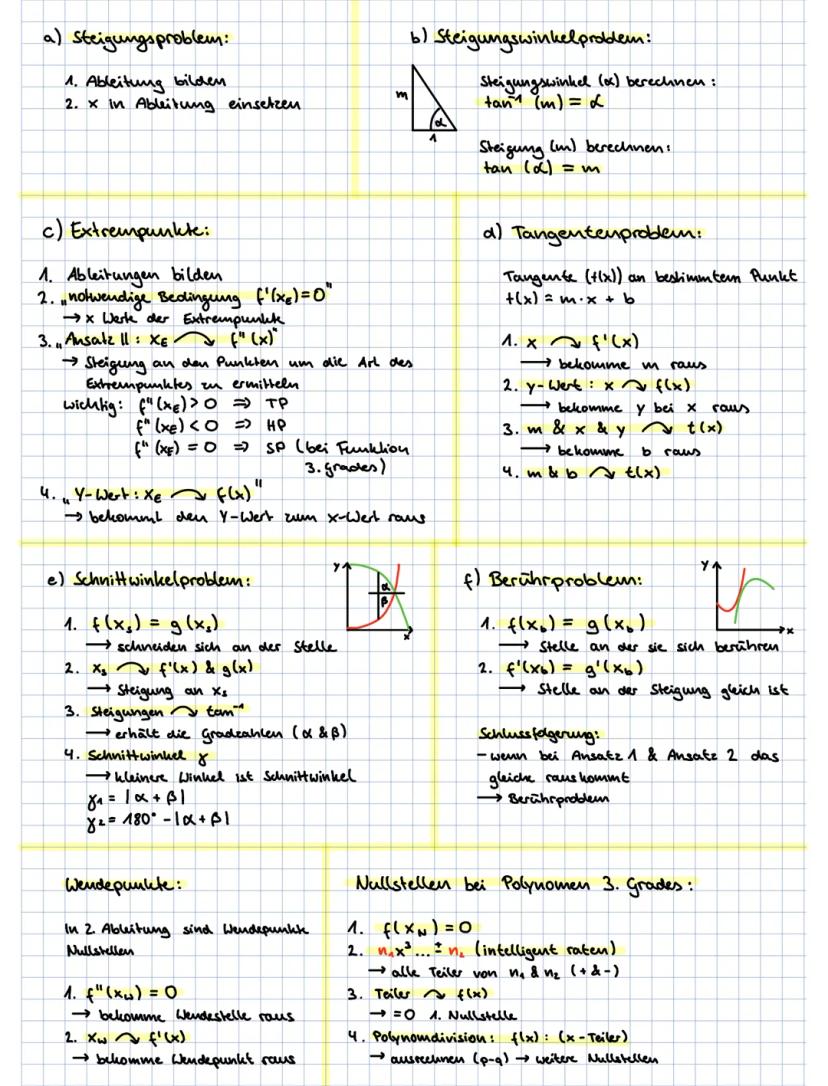 a) Steigungsproblem:
1. Ableitung bilden
2. x in Ableitung einsetzen
b) Steigungswinkelproblem:
m
α
1
Steigungswinkel (α) berechnen:
tan⁻¹ (m) = α
Steigung (m) berechnen:
tan (α) = m
c) Extrempunkte:
1. Ableitungen bilden
2. „notwendige Bedingung f'(xE)=0"
→ x Werte der Extrempunkte
3. „Ansatz II: xE ↷ f"(x)"
→ Steigung an den Punkten um die Art des
Extrempunktes zu ermitteln
wichtig: f"(xE) > 0 ⇒ TP
f"(xE) < 0 ⇒ HP
f"(xE) = 0 ⇒ SP (bei Funktion
3. grades)
4. „Y-Wert: xE ↷ f(x)"
→ bekommt den Y-Wert zum x-Wert raus
d) Tangentenproblem:
Tangente (t(x)) an bestimmtem Punkt
t(x) = m·x + b
1. x ↷ f'(x)
→ bekomme m raus
2. y-Wert: x ↷ f(x)
→ bekomme y bei x raus
3. m & x & y ↷ t(x)
→ bekomme b raus
4. m & b ↷ t(x)
e) Schnittwinkelproblem:
y
α
β
x
1. f(xs) = g(xs)
→ schneiden sich an der Stelle
2. xs ↷ f'(x) & g(x)
→ Steigung an xs
3. Steigungen ↷ tan⁻¹
→ erhält die Gradzahlen (α & β)
4. Schnittwinkel γ
→ kleinere Winkel ist Schnittwinkel
γ1 = |α + β|
γ2 = 180° - |α + β|
f) Berührproblem:
y
x
1. f(xb) = g(xb)
→ Stelle an der sie sich berühren
2. f'(xb) = g'(xb)
→ Stelle an der Steigung gleich ist
Schlussfolgerung:
- wenn bei Ansatz 1 & Ansatz 2 das
gleiche rauskommt
→ Berührproblem
Wendepunkte:
In 2. Ableitung sind Wendepunkte
Nullstellen
1. f"(xw) = 0
→ bekomme Wendestelle raus
2. xw ↷ f'(x)
→ bekomme Wendepunkt raus
Nullstellen bei Polynomen 3. Grades:
1. f(xN) = 0
2. n₁x³... ± n₂ (intelligent raten)
→ alle Teiler von n₁ & n₂ (+ & -)
3. Teiler ↷ f(x)
→ =0 1. Nullstelle
4. Polynomdivision: f(x) : (x - Teiler)
→ ausrechnen (p-q) → weitere Nullstellen